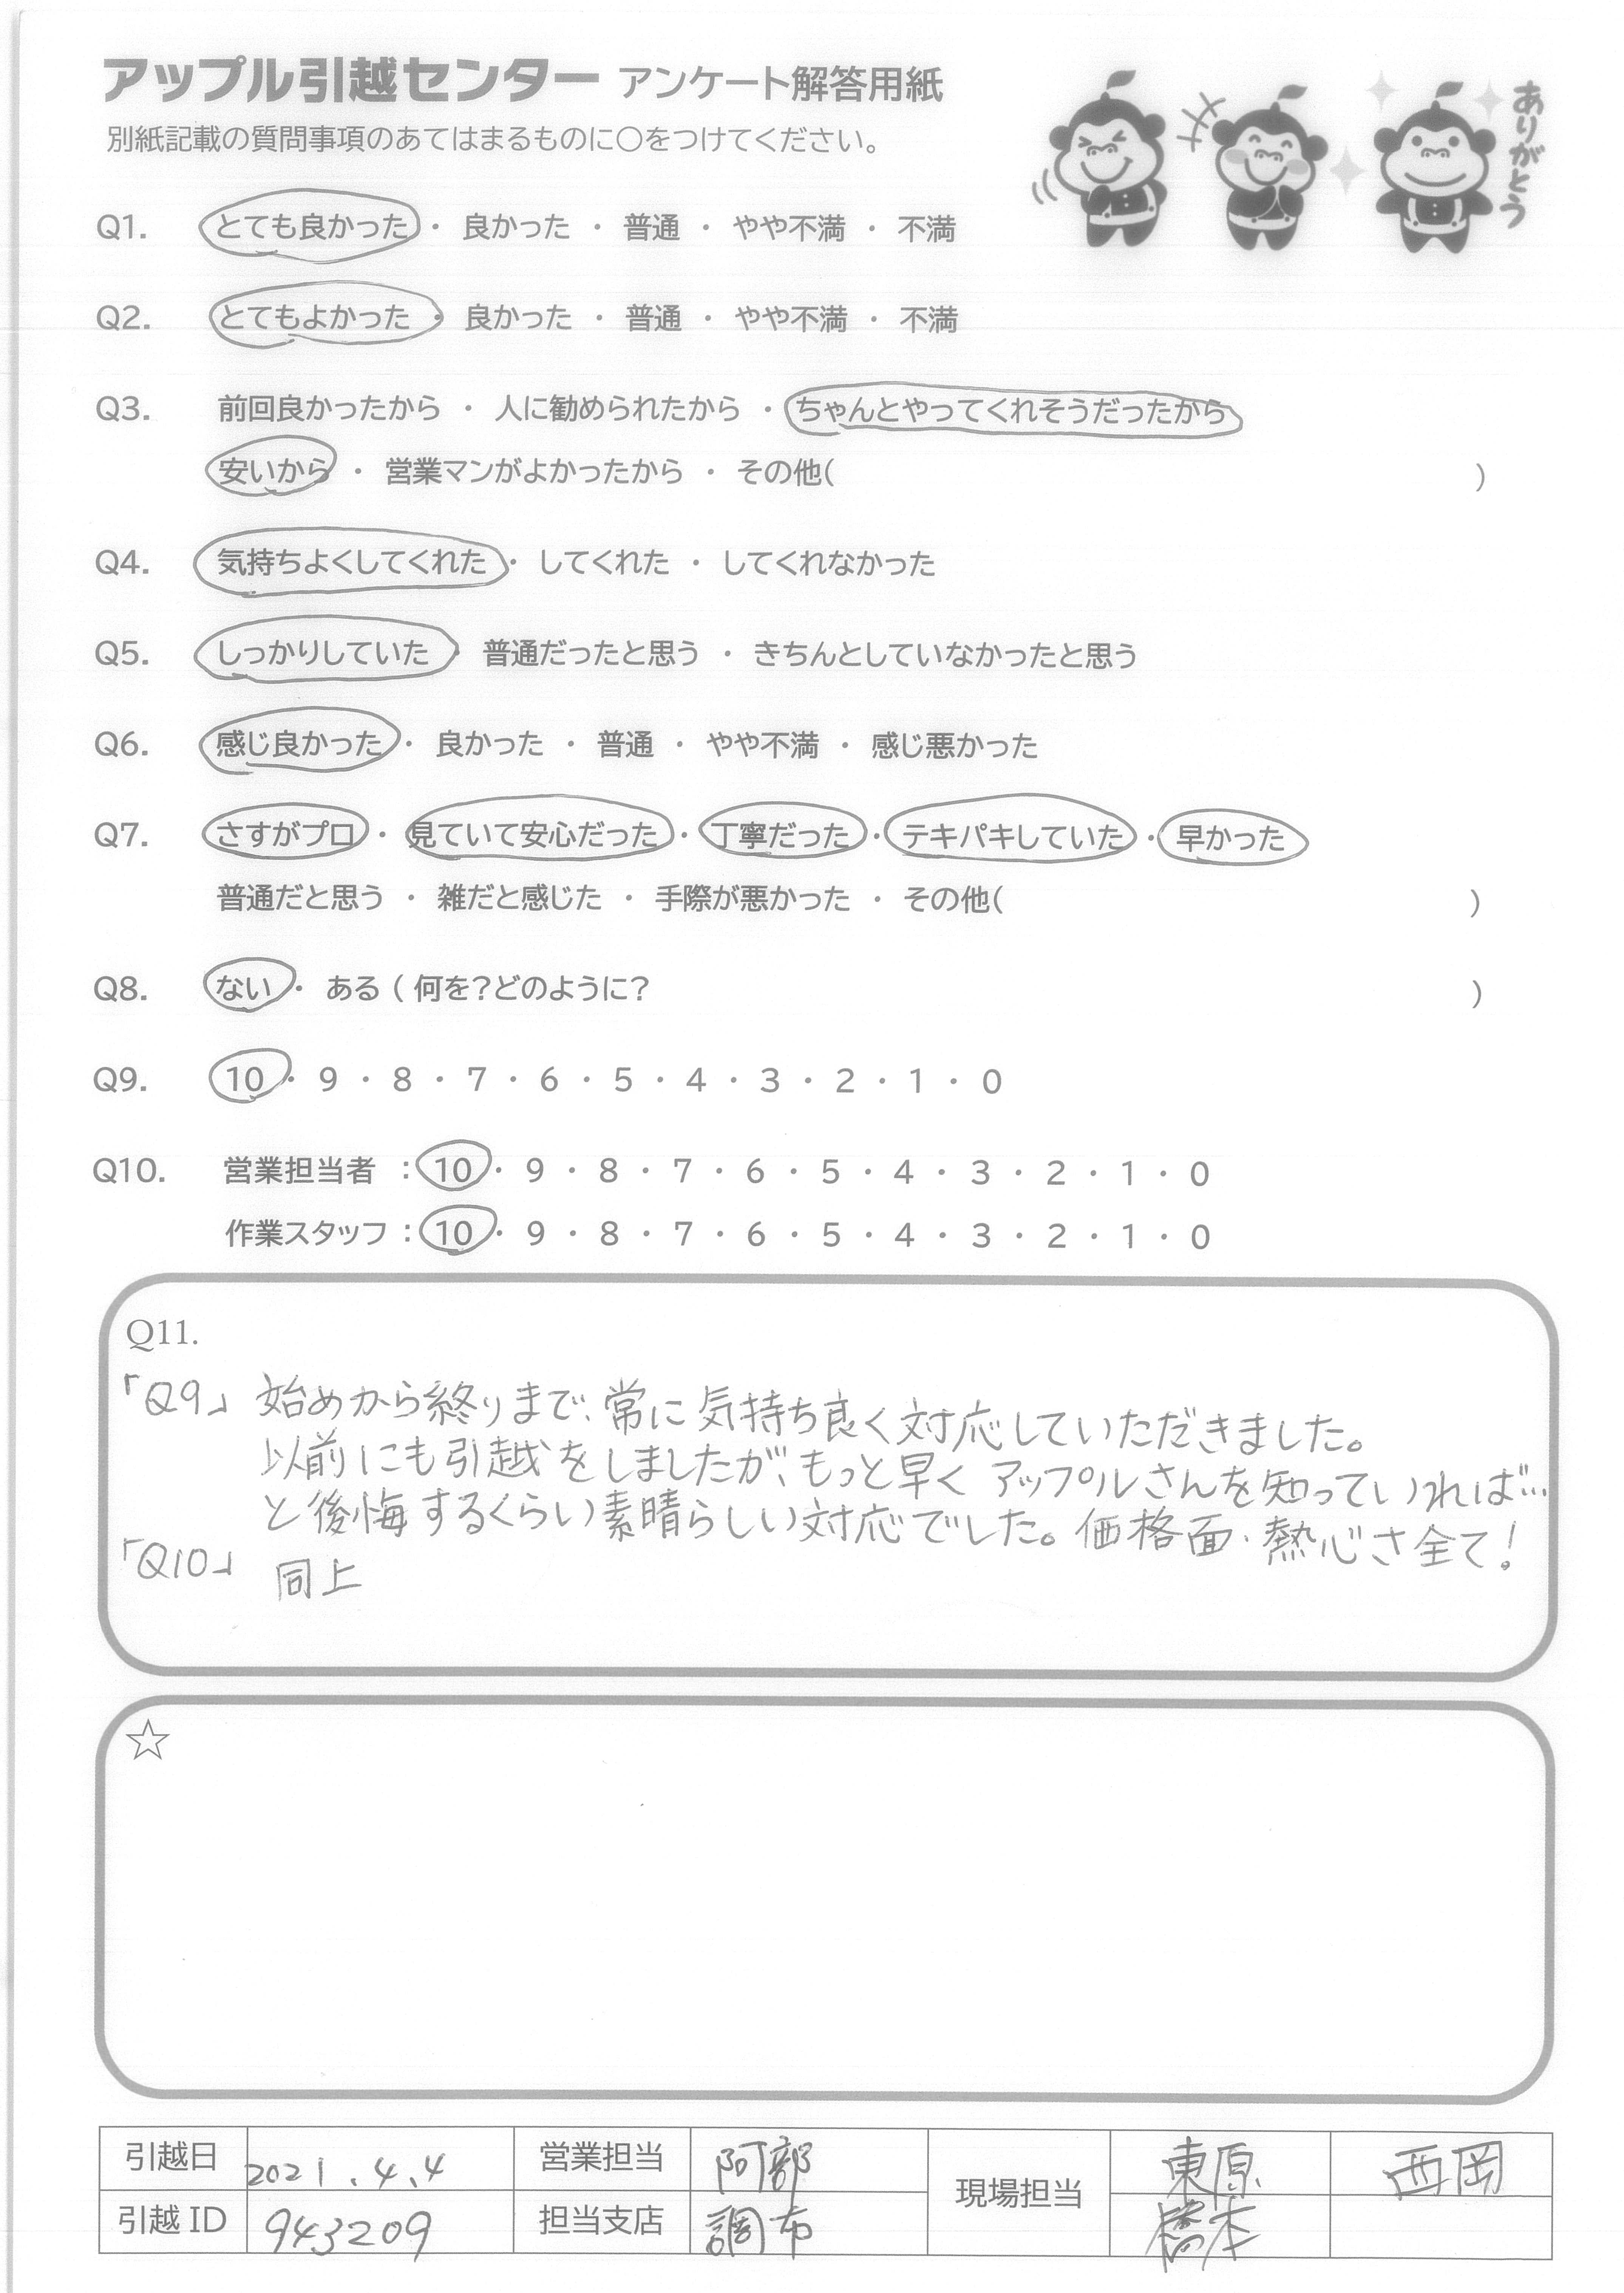 アップル引越センター アンケート解答用紙
別紙記載の質問事項のあてはまるものに○をつけてください。
ありがとう
Q1. とても良かった ・ 良かった ・ 普通 ・ やや不満 ・ 不満
Q2. とてもよかった ・ 良かった ・ 普通 ・ やや不満 ・ 不満
Q3. 前回良かったから ・ 人に勧められたから ・ ちゃんとやってくれそうだったから
安いから ・ 営業マンがよかったから ・ その他( )
Q4. 気持ちよくしてくれた ・ してくれた ・ してくれなかった
Q5. しっかりしていた ・ 普通だったと思う ・ きちんとしていなかったと思う
Q6. 感じ良かった ・ 良かった ・ 普通 ・ やや不満 ・ 感じ悪かった
Q7. さすがプロ ・ 見ていて安心だった ・ 丁寧だった ・ テキパキしていた ・ 早かった
普通だと思う ・ 雑だと感じた ・ 手際が悪かった ・ その他( )
Q8. ない ・ ある ( 何を?どのように? )
Q9. 10 ・ 9 ・ 8 ・ 7 ・ 6 ・ 5 ・ 4 ・ 3 ・ 2 ・ 1 ・ 0
Q10. 営業担当者 : 10 ・ 9 ・ 8 ・ 7 ・ 6 ・ 5 ・ 4 ・ 3 ・ 2 ・ 1 ・ 0
作業スタッフ : 10 ・ 9 ・ 8 ・ 7 ・ 6 ・ 5 ・ 4 ・ 3 ・ 2 ・ 1 ・ 0
Q11.
「Q9」 始めから終りまで、常に気持ち良く対応していただきました。
以前にも引越をしましたが、もっと早く アップルさんを知っていれば…
と後悔するくらい素晴らしい対応でした。価格面・熱心さ全て!
「Q10」 同上
☆
引越日 2021.4.4 営業担当 阿部 現場担当 東原 西岡
引越 ID 943209 担当支店 調布 橋本